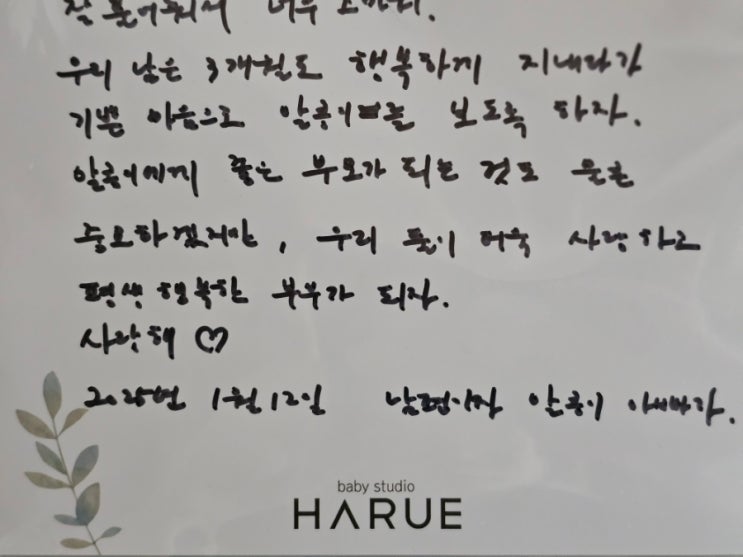 잘 품어줘서 너무 고마워.
우리 남은 3개월도 행복하게 지내다가
기쁜 마음으로 알콩이를 보도록 하자.
알콩이에게 좋은 부모가 되는 것도 물론
중요하겠지만, 우리 둘이 더욱 사랑하고
평생 행복한 부부가 되자.
사랑해 ♡
2025년 1월 12일 남편이자 알콩이 아빠가.
baby studio
HARUE